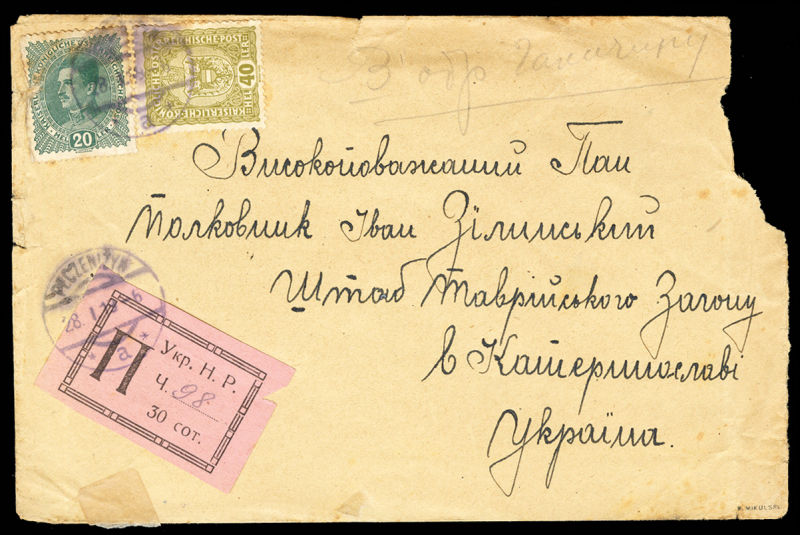 KAISERLICHE KÖNIGLICHE ÖSTERREICHISCHE POST
20
KAISERLICHE KÖNIGLICHE ÖSTERREICHISCHE POST
HELLER 40
З'обр
Високоповажаний Пан
Полковник Іван Зілинський
Штаб Таврійського Загону
в Катеринославі
Україна.
PECZENIŻYN
28. I.
a
П
Укр. Н. Р.
Ч. 98
30 сот.
MIKULSKI